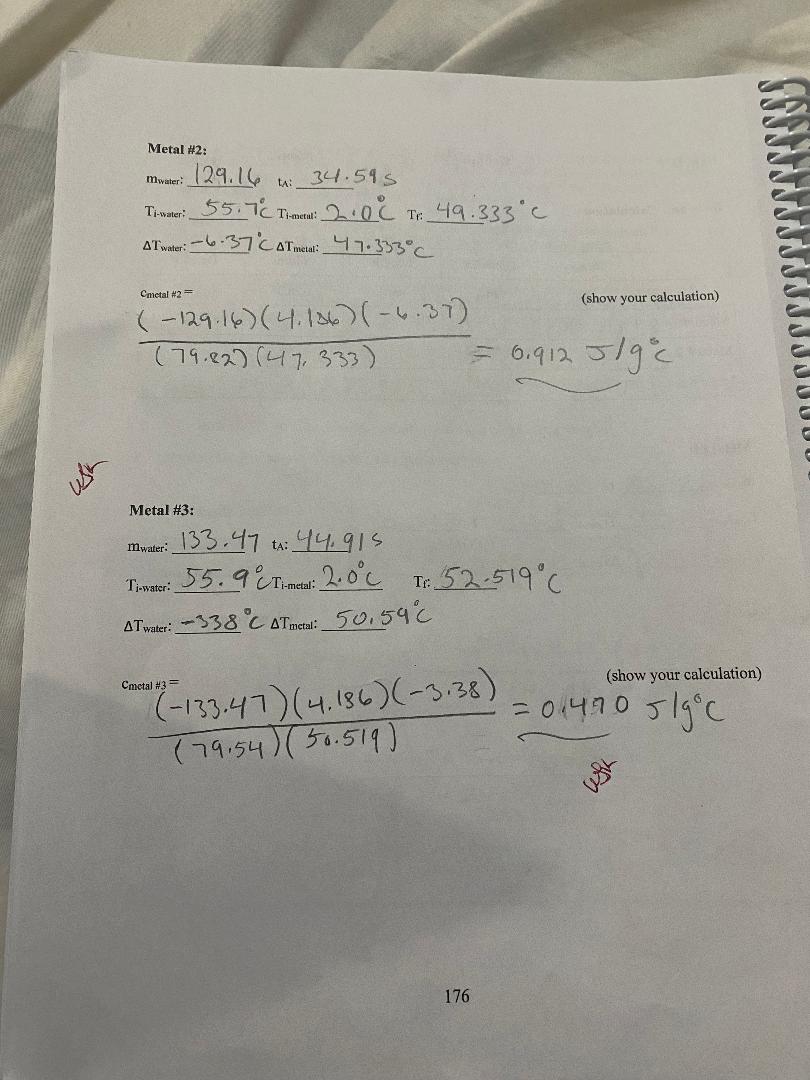 Metal #2:
mwater: 129.16 tA: 34.59 s
Ti-water: 55.7°C Ti-metal: 2.0°C Tf: 49.333°C
ΔTwater: -6.37°C ΔTmetal: 47.333°C
cmetal #2 = (show your calculation)
(-129.16)(4.186)(-6.37)
(79.82)(47.333) = 0.912 J/g°C
Metal #3:
mwater: 133.47 tA: 44.91 s
Ti-water: 55.9°C Ti-metal: 2.0°C Tf: 52.519°C
ΔTwater: -338°C ΔTmetal: 50.59°C
cmetal #3 = (show your calculation)
(-133.47)(4.186)(-3.38) = 0.470 J/g°C
(79.54)(50.519)
176